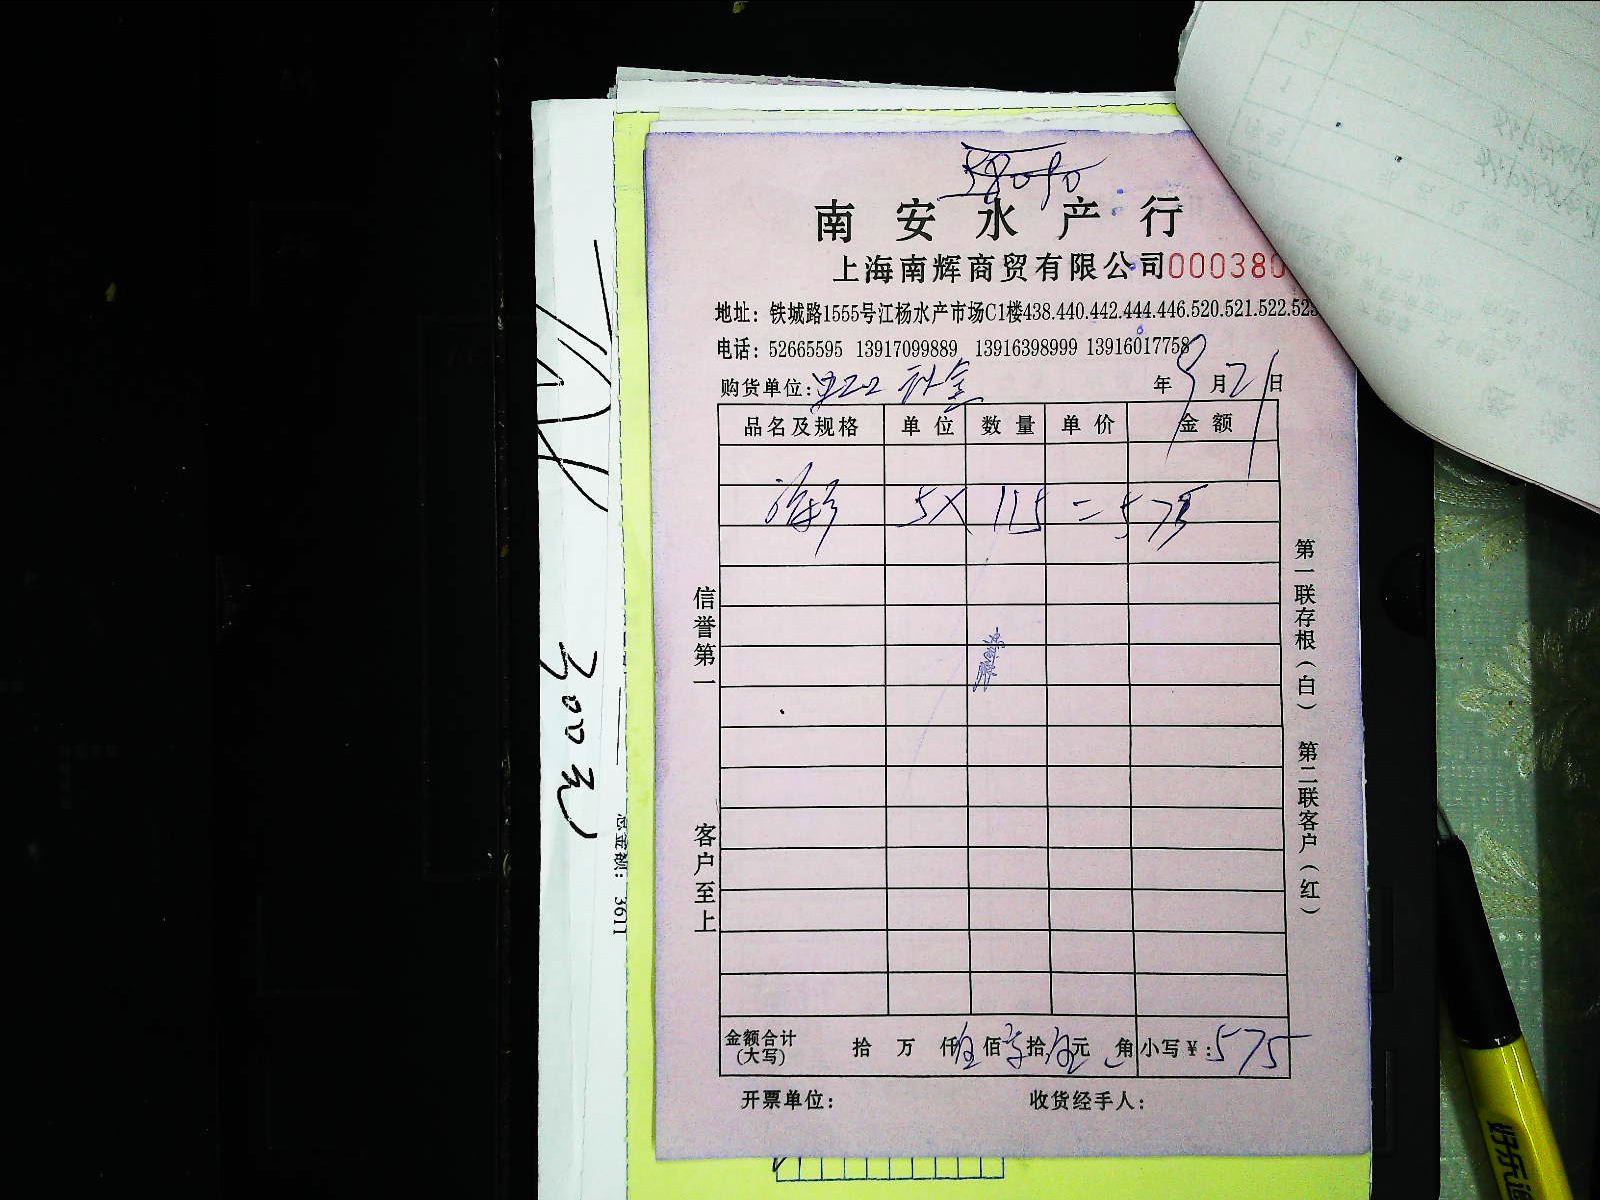 南安水产行
上海南辉商贸有限公司 000380
地址：铁城路1555号江杨水产市场C1楼438.440.442.444.446.520.521.522.523
电话：52665595 13917099889 13916398999 13916017758
购货单位： 年 9 月 21 日
品名及规格 单位 数量 单价 金额
5× 115 = 575
信誉第一 客户至上
第一联存根（白） 第二联客户（红）
金额合计（大写） 拾 万 仟 伍 佰 拾 伍 元 角 小写￥：575
开票单位： 收货经手人：
300元
总金额： 3611